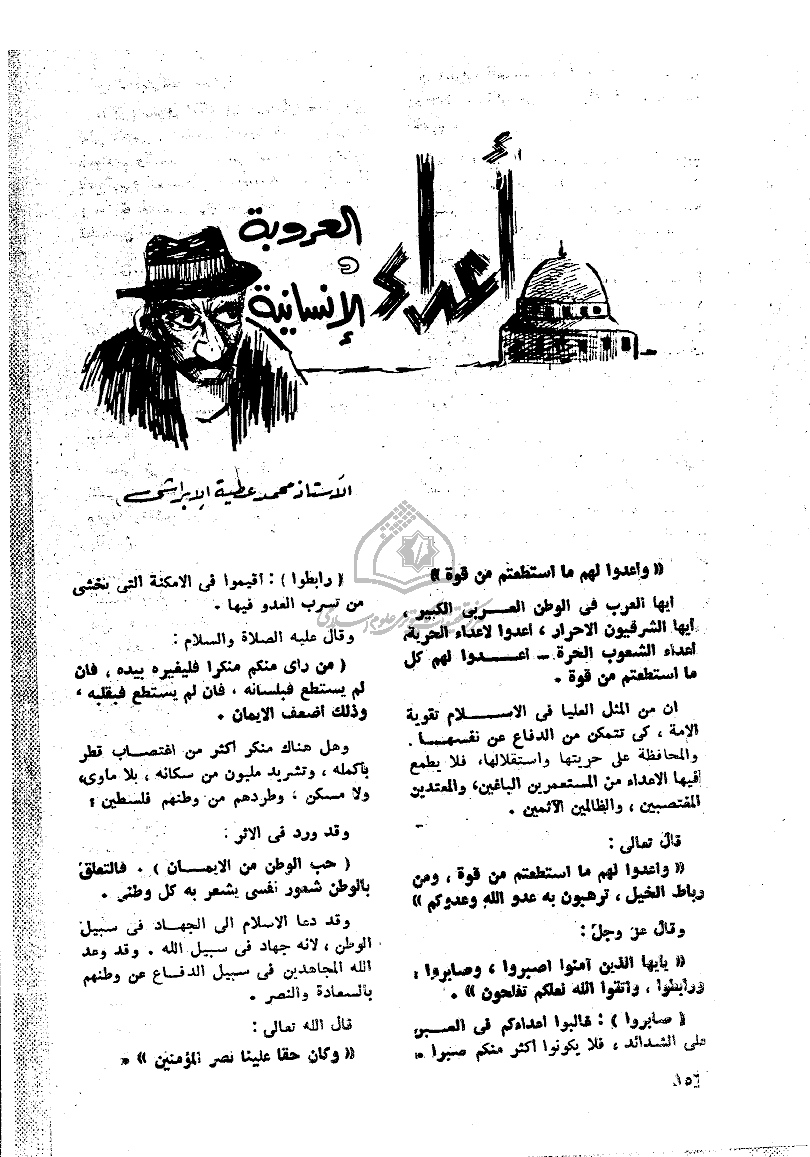 أعداء
العروبة
و
الإنسانية
الأستاذ محمد عطية الإبراشى
« وأعدوا لهم ما استطعتم من قوة »
أيها العرب فى الوطن العـــربى الكبير ،
أيها الشرقيون الاحرار ، أعدوا لاعداء الحرية،
أعداء الشعوب الحرة ــ أعــــدوا لهم كل
ما استطعتم من قوة .
ان من المثل العليا فى الاســــلام تقوية
الامة ، كى تتمكن من الدفاع عن نفسهـــا .
والمحافظة على حريتها واستقلالها، فلا يطمع
فيها الاعداء من المستعمرين الباغين، والمعتدين
المغتصبين ، والظالمين الآثمين .
قال تعالى :
« وأعدوا لهم ما استطعتم من قوة ، ومن
رباط الخيل ، ترهبون به عدو الله وعدوكم »
وقال عز وجل :
« يأيها الذين آمنوا اصبروا ، وصابروا ،
ورابطوا ، واتقوا الله لعلكم تفلحون » .
( صابروا ) : غالبوا أعداءكم فى الصـــبر
على الشدائد ، فلا يكونوا أكثر منكم صبرا .
( رابطوا ) : أقيموا فى الامكنة التى يخشى
من تسرب العدو فيها .
وقال عليه الصلاة والسلام :
( من رأى منكم منكرا فليغيره بيده ، فان
لم يستطع فبلسانه ، فان لم يستطع فبقلبه ،
وذلك أضعف الايمان .
وهل هناك منكر أكثر من اغتصـــاب قطر
بأكمله ، وتشريد مليون من سكانه ، بلا مأوى،
ولا مسكن ، وطردهم من وطنهم فلسطين ؟
وقد ورد فى الاثر :
( حب الوطن من الايمـــان ) . فالتعلق
بالوطن شعور نفسى يشعر به كل وطنى .
وقد دعا الاسلام الى الجهـــاد فى سبيل
الوطن ، لانه جهاد فى سبيل الله . وقد وعد
الله المجاهدين فى سبيل الدفاع عن وطنهم
بالسعادة والنصر .
قال الله تعالى :
« وكان حقا علينا نصر المؤمنين » .
١٥٦